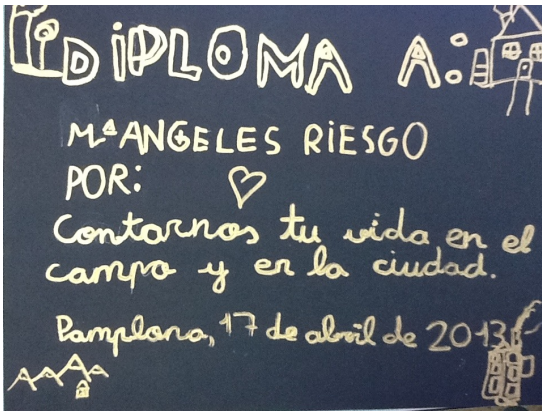 DIPLOMA A:
Mª ANGELES RIESGO
POR:
Contarnos tu vida en el
campo y en la ciudad.
Pamplona, 17 de abril de 2013